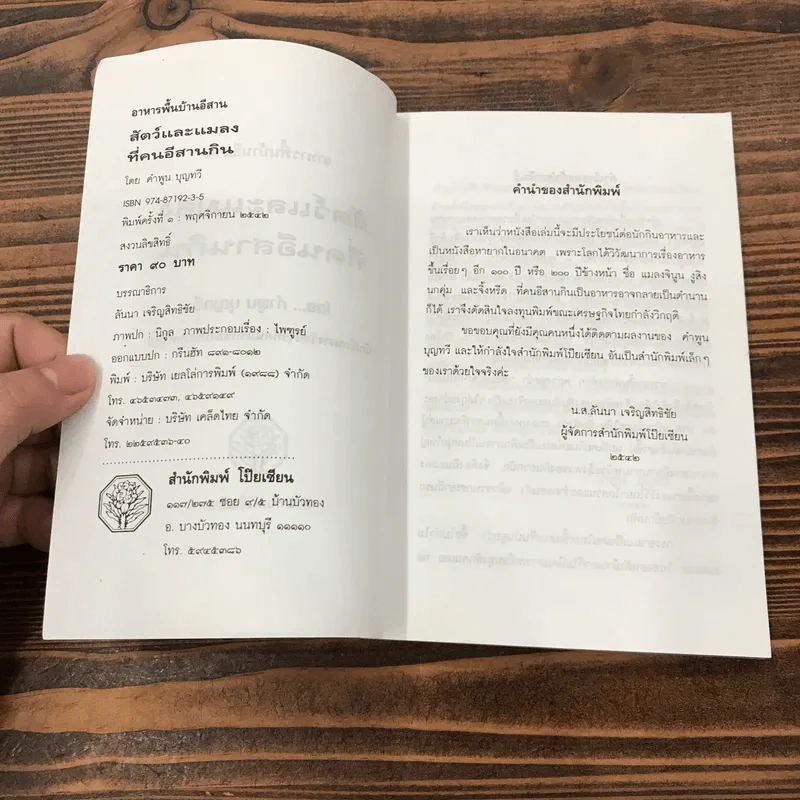 อาหารพื้นบ้านอีสาน
สัตว์และแมลง
ที่คนอีสานกิน
โดย คำพูน บุญทวี
ISBN 974-87192-3-5
พิมพ์ครั้งที่ ๑ : พฤศจิกายน ๒๕๔๒
สงวนลิขสิทธิ์
ราคา ๙๐ บาท
บรรณาธิการ
ลันนา เจริญสิทธิชัย
ภาพปก : นิกูล ภาพประกอบเรื่อง : ไพฑูรย์
ออกแบบปก : กรีนฮัท ๘๙๑-๘๐๑๒
พิมพ์ : บริษัท เยลโล่การพิมพ์ (๑๙๘๘) จำกัด
โทร. ๔๖๕๓๔๗๓, ๔๖๕๙๑๔๙
จัดจำหน่าย : บริษัท เคล็ดไทย จำกัด
โทร. ๒๒๕๙๕๓๖-๔๐
สำนักพิมพ์ โป๊ยเซียน
๑๑๗/๒๓๕ ซอย ๙/๕ บ้านบัวทอง
อ. บางบัวทอง นนทบุรี ๑๑๑๑๐
โทร. ๕๙๔๕๓๘๖
คำนำของสำนักพิมพ์
เราเห็นว่าหนังสือเล่มนี้จะมีประโยชน์ต่อนักกินอาหารและ
เป็นหนังสือหายากในอนาคต เพราะโลกได้วิวัฒนาการเรื่องอาหาร
ขึ้นเรื่อยๆ อีก ๑๐๐ ปี หรือ ๒๐๐ ปีข้างหน้า ชื่อ แมลงจินูน งูสิง
นกคุ่ม และจิ้งหรีด ที่คนอีสานกินเป็นอาหารอาจกลายเป็นตำนาน
ก็ได้ เราจึงตัดสินใจลงทุนพิมพ์ขณะเศรษฐกิจไทยกำลังวิกฤติ
ขอขอบคุณที่ยังมีคุณคนหนึ่งได้ติดตามผลงานของ คำพูน
บุญทวี และให้กำลังใจสำนักพิมพ์โป๊ยเซียน อันเป็นสำนักพิมพ์เล็กๆ
ของเราด้วยใจจริงค่ะ
น.ส.ลันนา เจริญสิทธิชัย
ผู้จัดการสำนักพิมพ์โป๊ยเซียน
๒๕๔๒